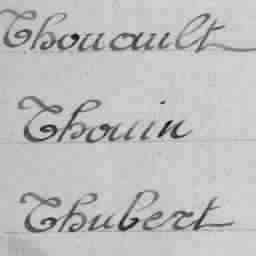 Thouault
Thouin
Thubert